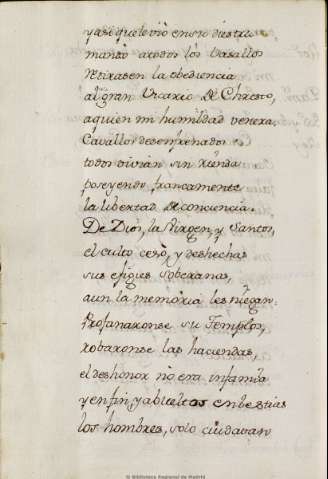 y asi que le vió en su diestra
mandó a todos los Vasallos
Retirasen la obediencia
al gran Vicario de Christo,
a quien mi humildad venera.
Cavallos desenfrenados
todos vivian sin rienda
poseyendo francamente
la libertad de conciencia.
De Dios, la Virgen, y Santos,
el culto cesó, y deshechas
sus efigies soberanas,
aun la memoria les niegan.
Profanaronse sus Templos,
robaronse las haciendas,
el deshonor no era infamia
y en fin, ya bueltos en bestias
los hombres, solo cuidavan
© Biblioteca Regional de Madrid